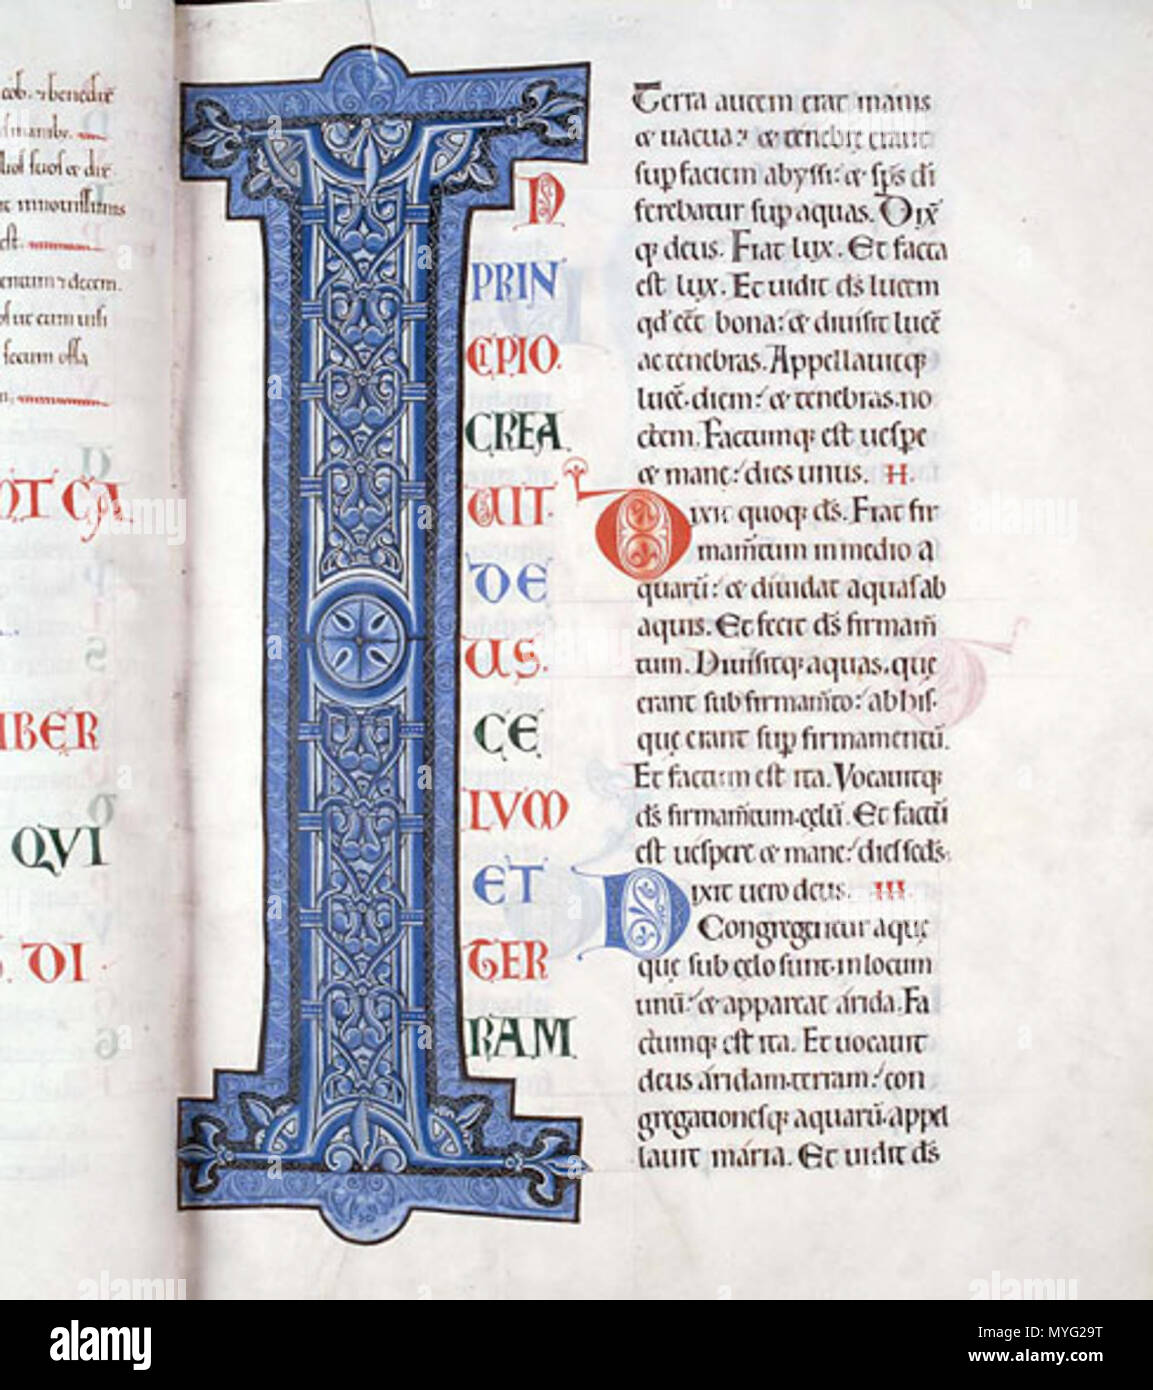 cob. ⁊ benedix̅
IBER
QVI
DI
I
N
PRIN
CIPIO.
CREA
UIT.
DE
US.
CE
LVM
ET
TER
RAM
Terra autem erat inanis
& uacua: & tenebrę erant
sup faciem abyssi: & sp̅s di̅
ferebatur sup aquas. Dix̅
q; deus. Fiat lux. Et facta
est lux. Et uidit d̅s lucem
qd ee̅t bona: & diuisit luce̅
ac tenebras. Appellauitq;
luce̅. diem: & tenebras. no
ctem. Factumq; est uespe
& mane: dies unus. II.
Dixit quoq; d̅s. Fiat fir
mam̅tum in medio a
quaru̅: & diuidat aquas ab
aquis. Et fecit d̅s firmam̅
tum. Diuisitq; aquas. quę
erant sub firmam̅to: ab his.
quę erant sup firmamentu̅.
Et factum est ita. Vocauitq;
d̅s firmam̅tum. cęlu̅. Et factu̅
est uespere & mane: dies sed̅s.
Dixit uero deus. III.
Congregentur aquę
quę sub cęlo sunt. in locum
unu̅: & appareat árida. Fa
ctumq; est ita. Et uocauit
deus áridam. terram: con
gregationesq; aquaru̅. appel
lauit mária. Et uidit d̅s
alamy
Image ID: MYG29T
www.alamy.com